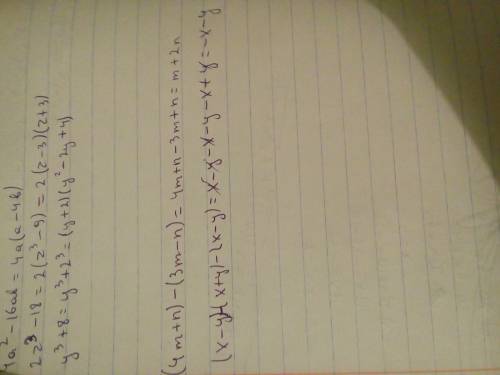 4a² - 16ab = 4a(a - 4b)
2z³ - 18 = 2(z³ - 9) = 2(z - 3)(z + 3)
y³ + 8 = y³ + 2³ = (y + 2)(y² - 2y + 4)
(4m + n) - (3m - n) = 4m + n - 3m + n = m + 2n
(x - y) - (x + y) - (x - y) = x - y - x - y - x + y = -x - y